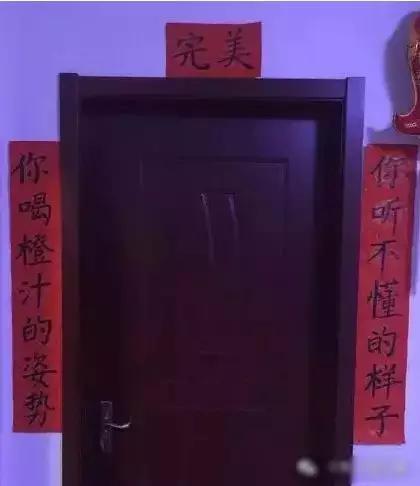 完美
你喝橙汁的姿势
你听不懂的样子